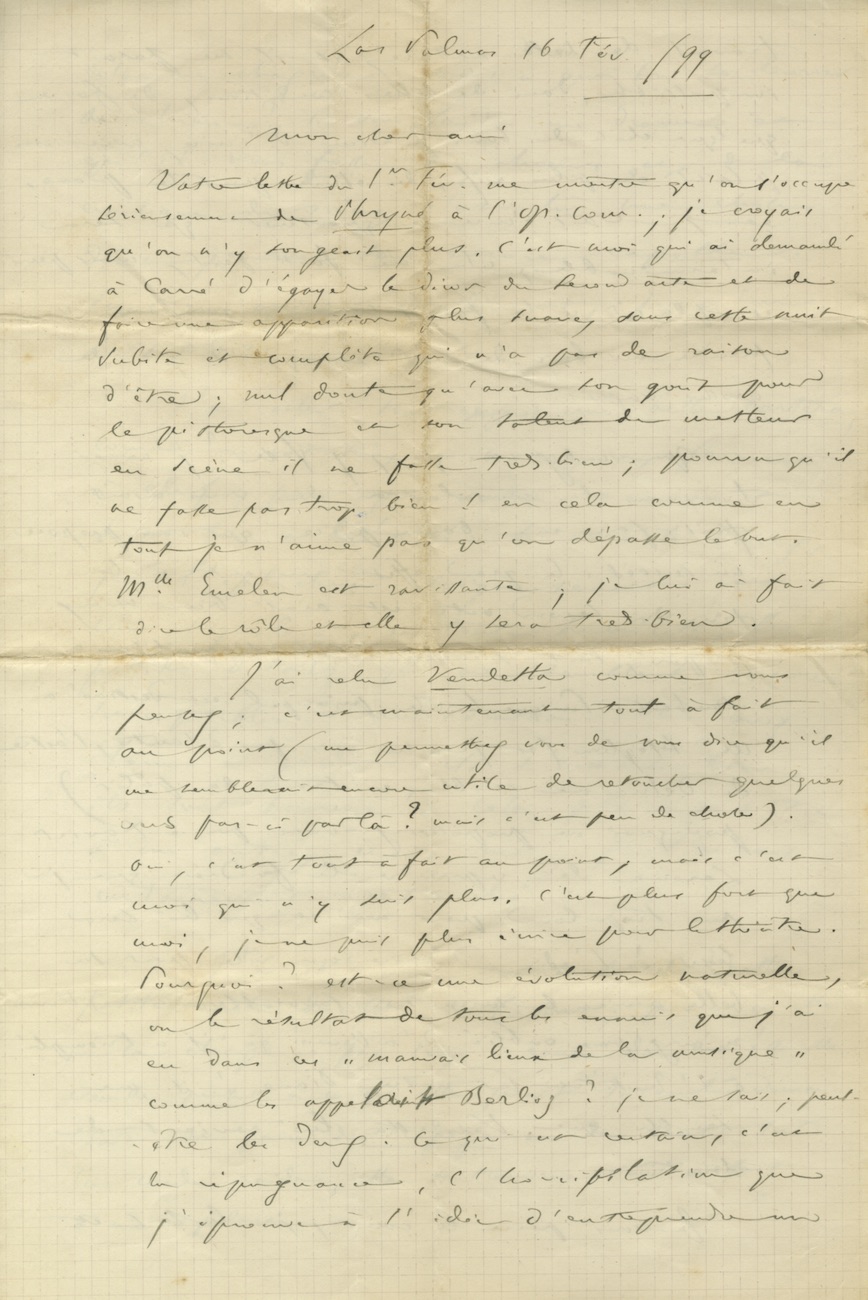 Las Palmas 16 Fév. /99
Mon cher ami
Votre lettre du 1er Fév. me montre qu'on s'occupe
sérieusement de Phryné à l'Op. Com. ; je croyais
qu'on n'y songeait plus. C'est moi qui ai demandé
à Carré d'égayer le décor du second acte et de
faire une apparition plus suave, sans cette nuit
subite et complète qui n'a pas de raison
d'être ; nul doute qu'avec son goût pour
le pittoresque et son talent de metteur
en scène il ne fasse très-bien ; pourvu qu'il
ne fasse pas trop bien ! en cela comme en
tout je n'aime pas qu'on dépasse le but.
Mlle Emelen est ravissante ; je lui ai fait
dire le rôle et elle y sera très-bien.
J'ai relu Vendetta comme vous
pensez ; c'est maintenant tout à fait
au point (me permettez vous de vous dire qu'il
me semblerait encore utile de retoucher quelques
vers par-ci par là ? mais c'est peu de chose).
Oui, c'est tout à fait au point, mais c'est
moi qui n'y suis plus. C'est plus fort que
moi, je ne puis plus écrire pour le théâtre.
Pourquoi ? est-ce une évolution naturelle,
ou le résultat de tous les ennuis que j'ai
eu dans ces « mauvais lieux de la musique »
comme les appelait Berlioz ? je ne sais ; peut-
être les deux. Ce qui est certain, c'est
la répugnance, l'horripilation que
j'éprouve à l'idée d'entreprendre un